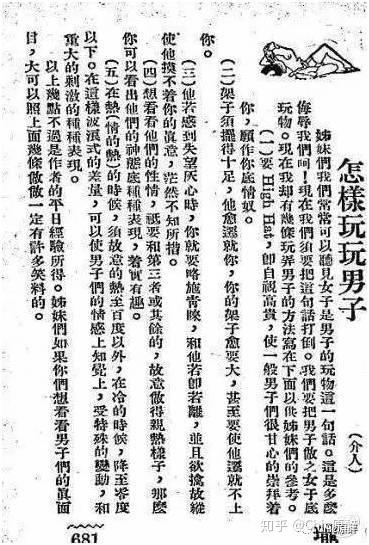 怎樣玩玩男子
(介人)
姊妹們我們常常可以聽見女子是男子的玩物這一句話。這是多麼
侮辱我們呵！現在我們須要把這句話打倒。我們要把男子做之女子底
玩物。現在我却有幾條玩弄男子的方法寫在下面以供姊妹們的參考。
(一)要High Hat，卽自視高貴，使一般男子們很甘心的崇拜着
你，願作你底情奴。
(二)架子須擺得十足，他愈遷就你，你的架子愈要大，甚至要使他遷就不上
你。
(三)他若感到失望灰心時，你就要略施靑睞，和他若卽若離，並且欲擒故縱
使他摸不着你的眞意，茫然不知所措。
(四)想看看他們的性情，祗要和第三者或其餘的，故意做得親熱樣子，那麼
你可以看出他們的神態底種種表現，着實有趣。
(五)在熱(情的熱)的時候，須故意的熱至百度以外，在冷的時候，降至零度
以下。在這樣波浪式的差量，可以使男子們的情感上知覺上，受特殊的變動，和
重大的刺激的種種表現。
以上幾點不過是作者的平日經驗所得。姊妹們如果你們想看看男子們的眞面
目，大可以照上面幾條做做一定有許多笑料的。
681
知乎